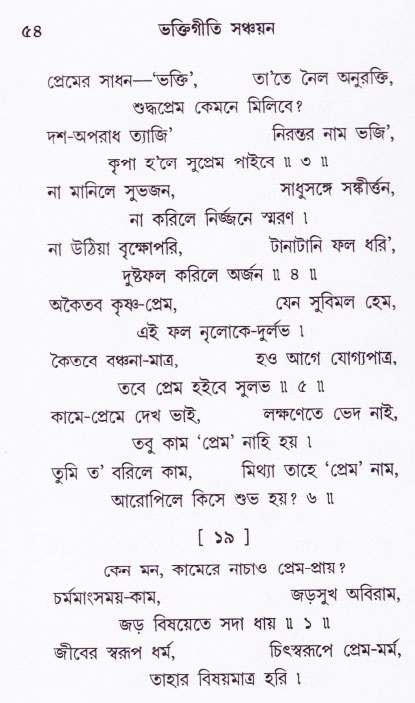 ৫৪ ভক্তিগীতি সঞ্চয়ন
প্রেমের সাধন—‘ভক্তি’, তা’তে নৈল অনুরক্তি,
শুদ্ধপ্রেম কেমনে মিলিবে?
দশ-অপরাধ ত্যাজি’ নিরন্তর নাম ভজি’,
কৃপা হ’লে সুপ্রেম পাইবে ॥ ৩ ॥
না মানিলে সুভজন, সাধুসঙ্গে সঙ্কীর্ত্তন,
না করিলে নির্জ্জনে স্মরণ ।
না উঠিয়া বৃক্ষোপরি, টানাটানি ফল ধরি’,
দুষ্টফল করিলে অর্জন ॥ ৪ ॥
অকৈতব কৃষ্ণ-প্রেম, যেন সুবিমল হেম,
এই ফল নৃলোকে-দুর্লভ ।
কৈতবে বঞ্চনা-মাত্র, হও আগে যোগ্যপাত্র,
তবে প্রেম হইবে সুলভ ॥ ৫ ॥
কামে-প্রেমে দেখ ভাই, লক্ষণেতে ভেদ নাই,
তবু কাম ‘প্রেম’ নাহি হয় ।
তুমি ত’ বরিলে কাম, মিথ্যা তাহে ‘প্রেম’ নাম,
আরোপিলে কিসে শুভ হয়? ৬ ॥
[ ১৯ ]
কেন মন, কামেরে নাচাও প্রেম-প্রায়?
চর্মমাংসময়-কাম, জড়সুখ অবিরাম,
জড় বিষয়েতে সদা ধায় ॥ ১ ॥
জীবের স্বরূপ ধর্ম, চিৎস্বরূপে প্রেম-মর্ম,
তাহার বিষয়মাত্র হরি ।